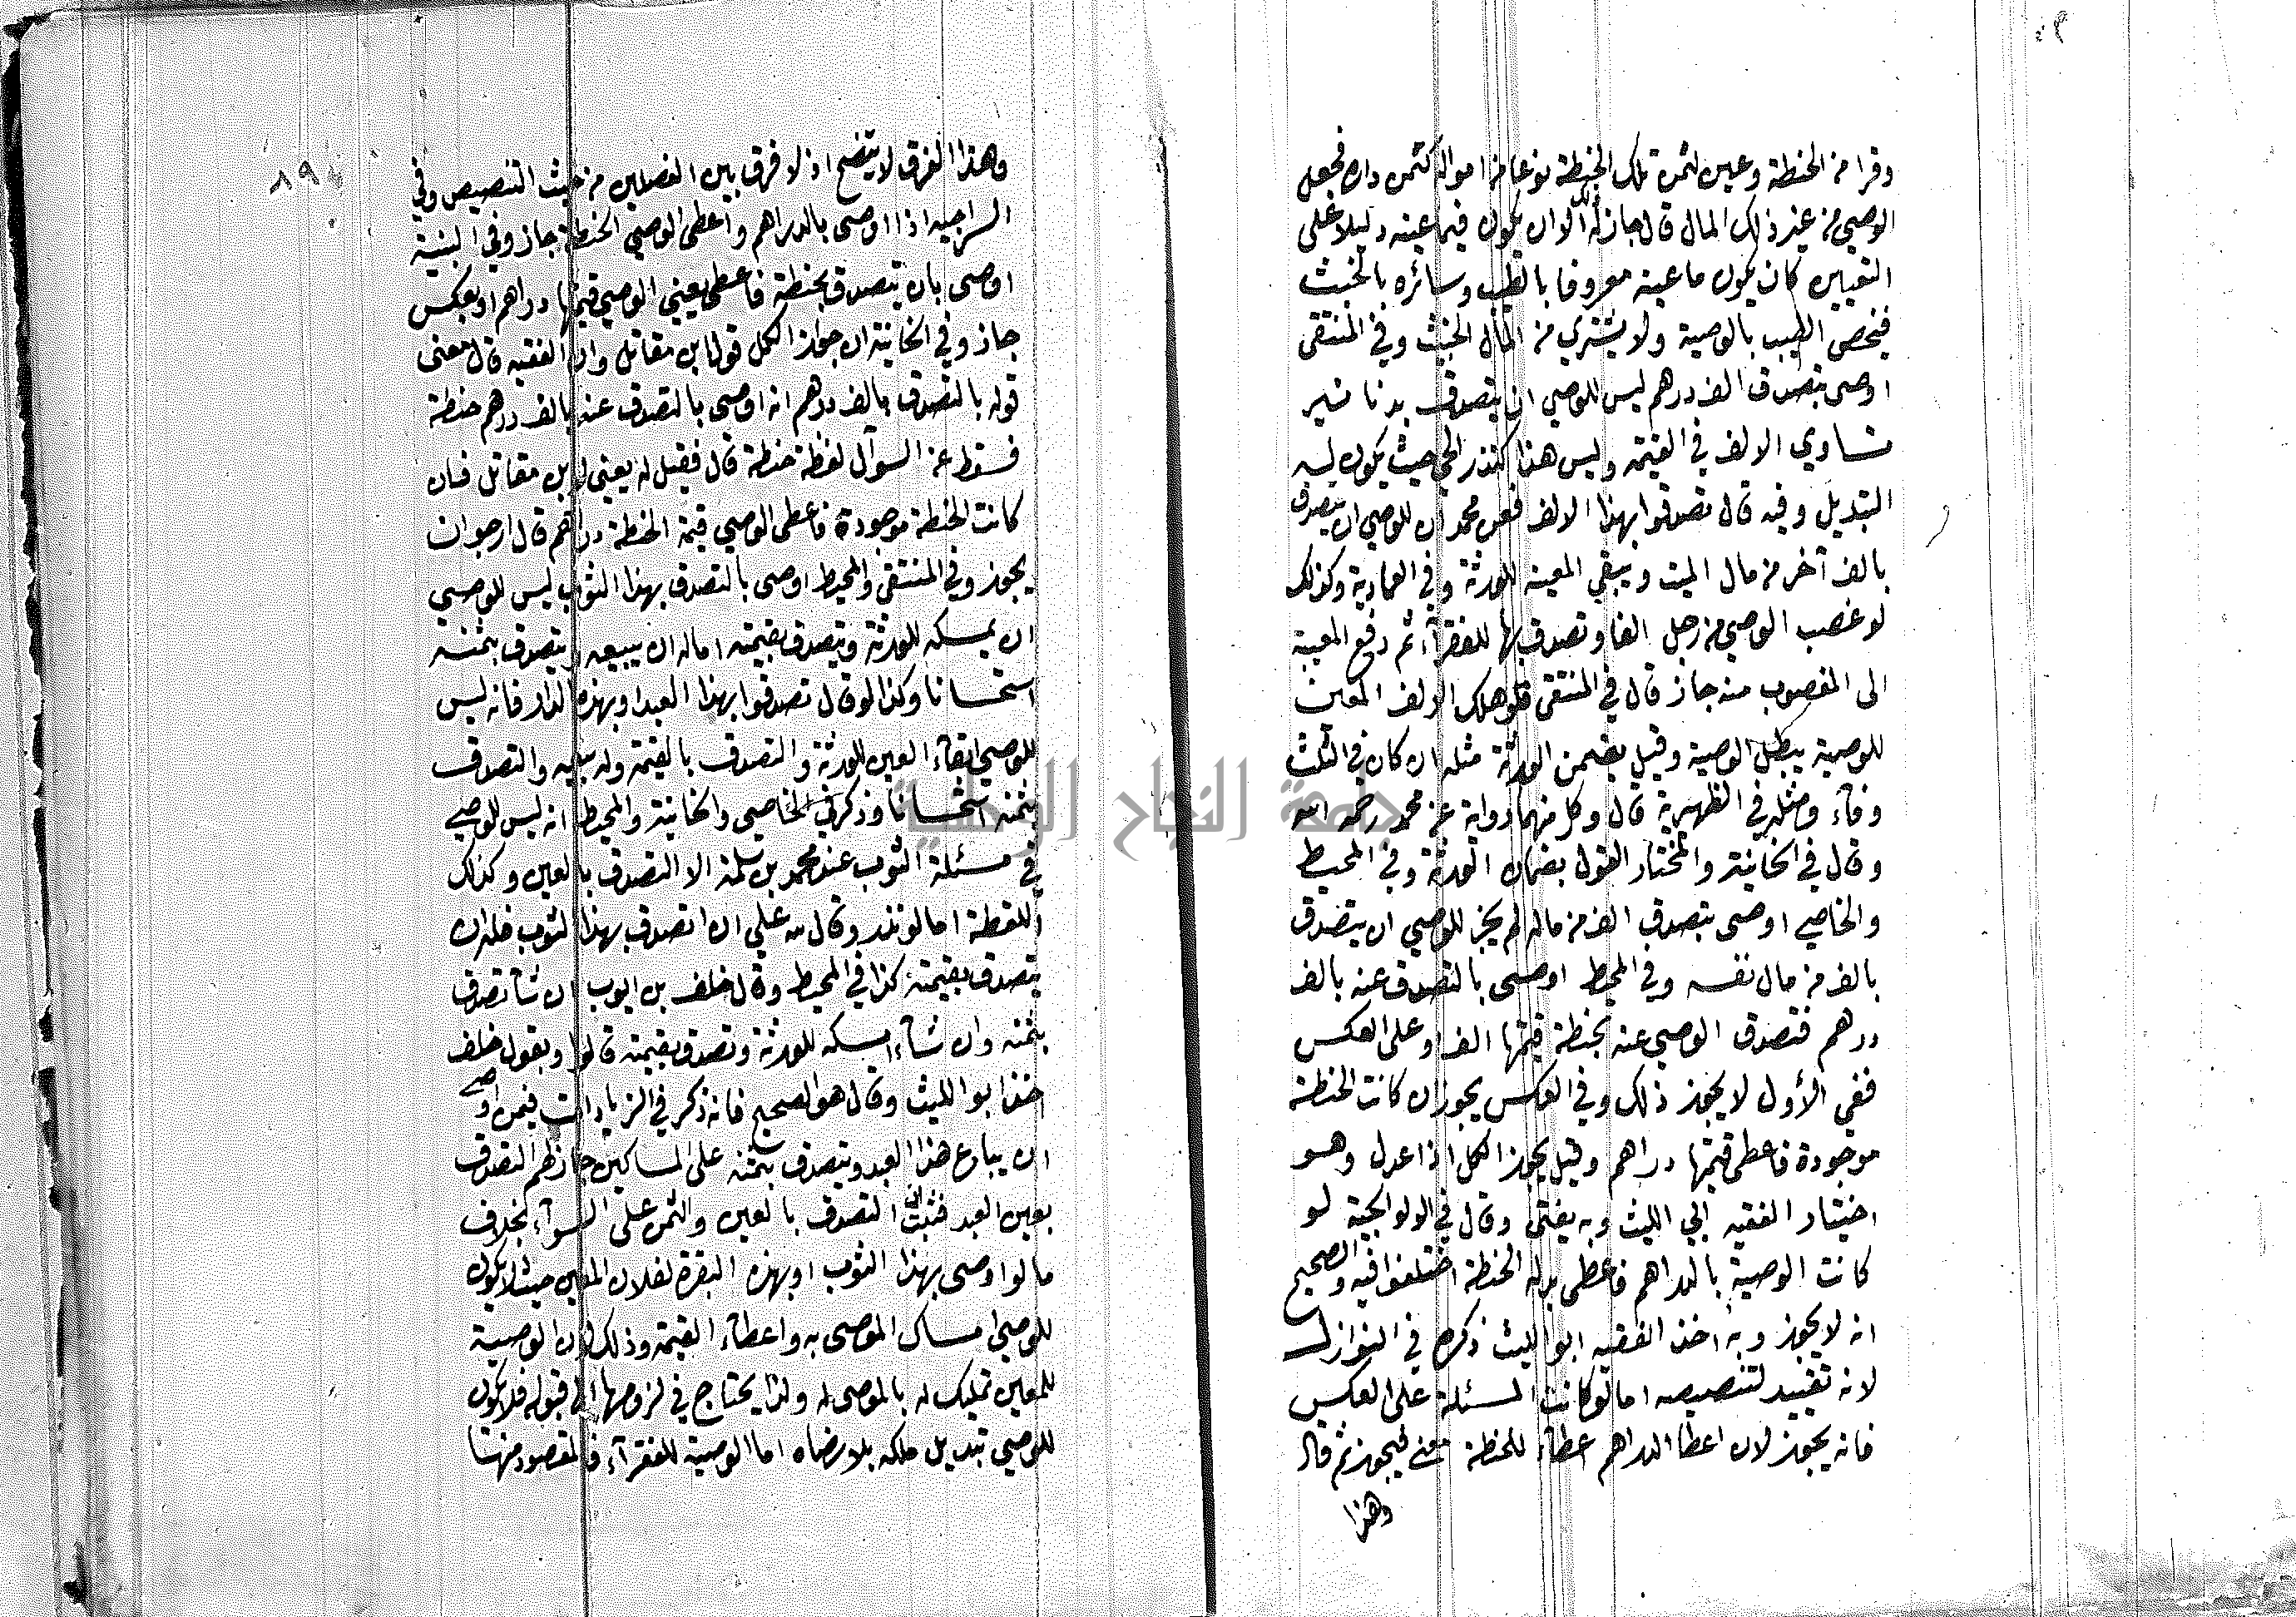 وقرا من الحنطة وعين لثمن تلك الحنطة نوعا من امواله كثمن داره فجعل
الوصي من غير ذلك المال قال جاز له الا ان يكون فيما عينه دليلا على
التعيين كان يكون ما عينه معروفا بالطيب وسائره بالخبث
فيخص الطيب بالوصية ولا يشتري من المال الخبيث وفي المنتقى
اوصى بتصدق الف درهم ليس للوصي ان يتصدق بدنانير
تساوي الالف في القيمة وليس هذا كنذر الحي حيث يكون له
التبديل وفيه قال تصدقوا بهذا الالف فعن محمد ان للوصي ان يتصدق
بالف آخر من مال الميت ويبقي المعينة للورثة وفي العمادية وكذلك
لو غصب الوصي من رجل الفا وتصدق بها للفقرآء ثم دفع المعينة
الى المغصوب منه جاز قال في المنتقى فلو هلك الالف المعين
للوصية يبطل الوصية وقيل يضمن الورثة مثله ان كان في الثلث
وفآء ومثله في الظهيرية قال وكل منهما رواية عن محمد رحمه الله
وقال في الخانية والمختار القول بضمان الورثة وفي المحيط
والخاصي اوصى بتصدق الف من ماله لم يجز للوصي ان يتصدق
بالف من مال نفسه وفي المحيط اوصى بالتصدق عنه بالف
درهم فتصدق الوصي عنه بحنطة قيمتها الف وعلى العكس
ففي الأول لا يجوز ذلك وفي العكس يجوز ان كانت الحنطة
موجودة فاعطى قيمتها دراهم وقيل يجوز الكل اذا عدل وهو
اختيار الفقيه ابي الليث وبه يفتى وقال في الولوالجية لو
كانت الوصية بالدراهم فاعطى بدله الحنطة اختلفوا فيه والصحيح
انه لا يجوز وبه اخذ الفقيه ابو الليث ذكره في النوازل
لانه تقييد لتنصيصه اما لو كانت المسئلة على العكس
فانه يجوز لان اعطا الدراهم اعطآء للحنطة معنى فيجوز ثم قال
وهذا
٨٩
وهذا الفرق لا يتضح اذ لا فرق بين الفصلين من حيث التنصيص وفي
السراجيه اذا اوصى بالدراهم واعطى الوصي الحنطة جاز وفي البنية
اوصى بان يتصدق بحنطة فاعطى يعني الوصي قيمتها دراهم او بعكس
جاز وفي الخانية ان جواز الكل قول ابن مقاتل وان الفقيه قال معنى
قوله بالتصدق بالف درهم انه اوصى بالتصدق عنه بالف درهم حنطة
فسقط عن السوآل لفظة حنطة قال فقيل له يعني لابن مقاتل فان
كانت الحنطة موجودة فاعطى الوصي قيمة الحنطة دراهم قال ارجو ان
يجوز وفي المنتقى والمحيط اوصى بالتصدق بهذا الثوب ليس للوصي
ان يمسكه للورثة ويتصدق بقيمته اما له ان يبيعه ويتصدق بثمنه
استحسانا وكذا لو قال تصدقوا بهذا العبد او بهذه الدار فانه ليس
للوصي ابقآء العين للورثة والتصدق بالقيمة وله بيعه والتصدق
بثمنه استحسانا وذكر في الخاصي والخانية والمحيط انه ليس للوصي
في مسئلة الثوب عند محمد بن سلمة الا التصدق بالعين وكذلك
اللقطة اما لو نذر وقال لله علي ان اتصدق بهذا الثوب فله ان
يتصدق بقيمته كذا في المحيط وقال خلف بن ايوب ان شآ تصدق
بثمنه وان شآء امسكه للورثة وتصدق بقيمته قالوا وبقول خلف
اخذ ابو الليث وقال هو الصحيح فانه ذكر في الزيادات فيمن اوصى
ان يباع هذا العبد ويتصدق بثمنه على المساكين جاز لهم التصدق
بعين العبد فثبت ان التصدق بالعين والثمن على السوآء بخلاف
ما لو اوصى بهذا الثوب او بهذه البقرة لفلان المعين حيث لا يكون
للوصي امساك الموصى به واعطآء القيمة وذلك لان الوصية
للمعين تمليك له بالموصى له ولذا يحتاج في لزومها الى قبوله فلا يكون
للوصي تبديل ملكه بلا رضاه اما الوصية للفقرآء فالمقصود منها
جامعة النجاح الوطنية